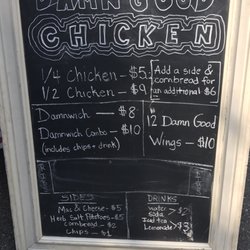 DAMN GOOD
CHICKEN
1/4 Chicken — $5
1/2 Chicken — $9
Add a side &
cornbread for
an additional $6
Damnwich — $8
Damnwich Combo — $10
(includes chips + drink)
12 Damn Good
Wings — $10
SIDES
Mac & Cheese - $5
Herb Salt Potatoes - $5
cornbread - $2
Chips - $1
DRINKS
water
soda > $2
Iced tea
Lemonade > $3